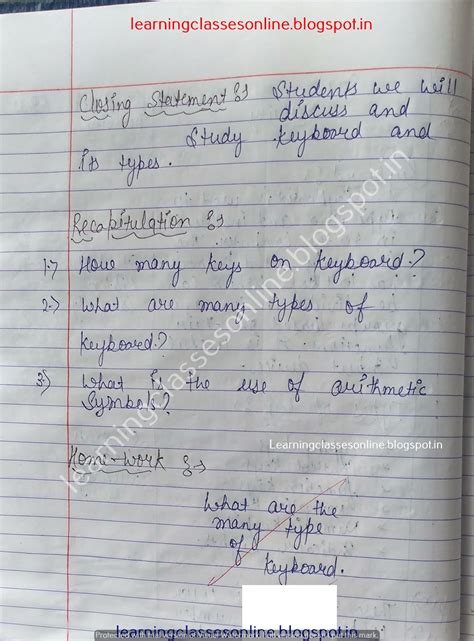 learningclassesonline.blogspot.in
Closing Statement :→ Students we will
discuss and
Study keyboard and
its types.
Recapitulation :→
1.→) How many keys on keyboard.?
2.→) What are many types of
keyboard.?
3.) What is the use of arithmetic
Symbols?
learningclassesonline.blogspot.in
Learningclassesonline.blogspot.in
Home-work :→
What are the
many type
of
keyboard.
learningclassesonline.blogspot.in